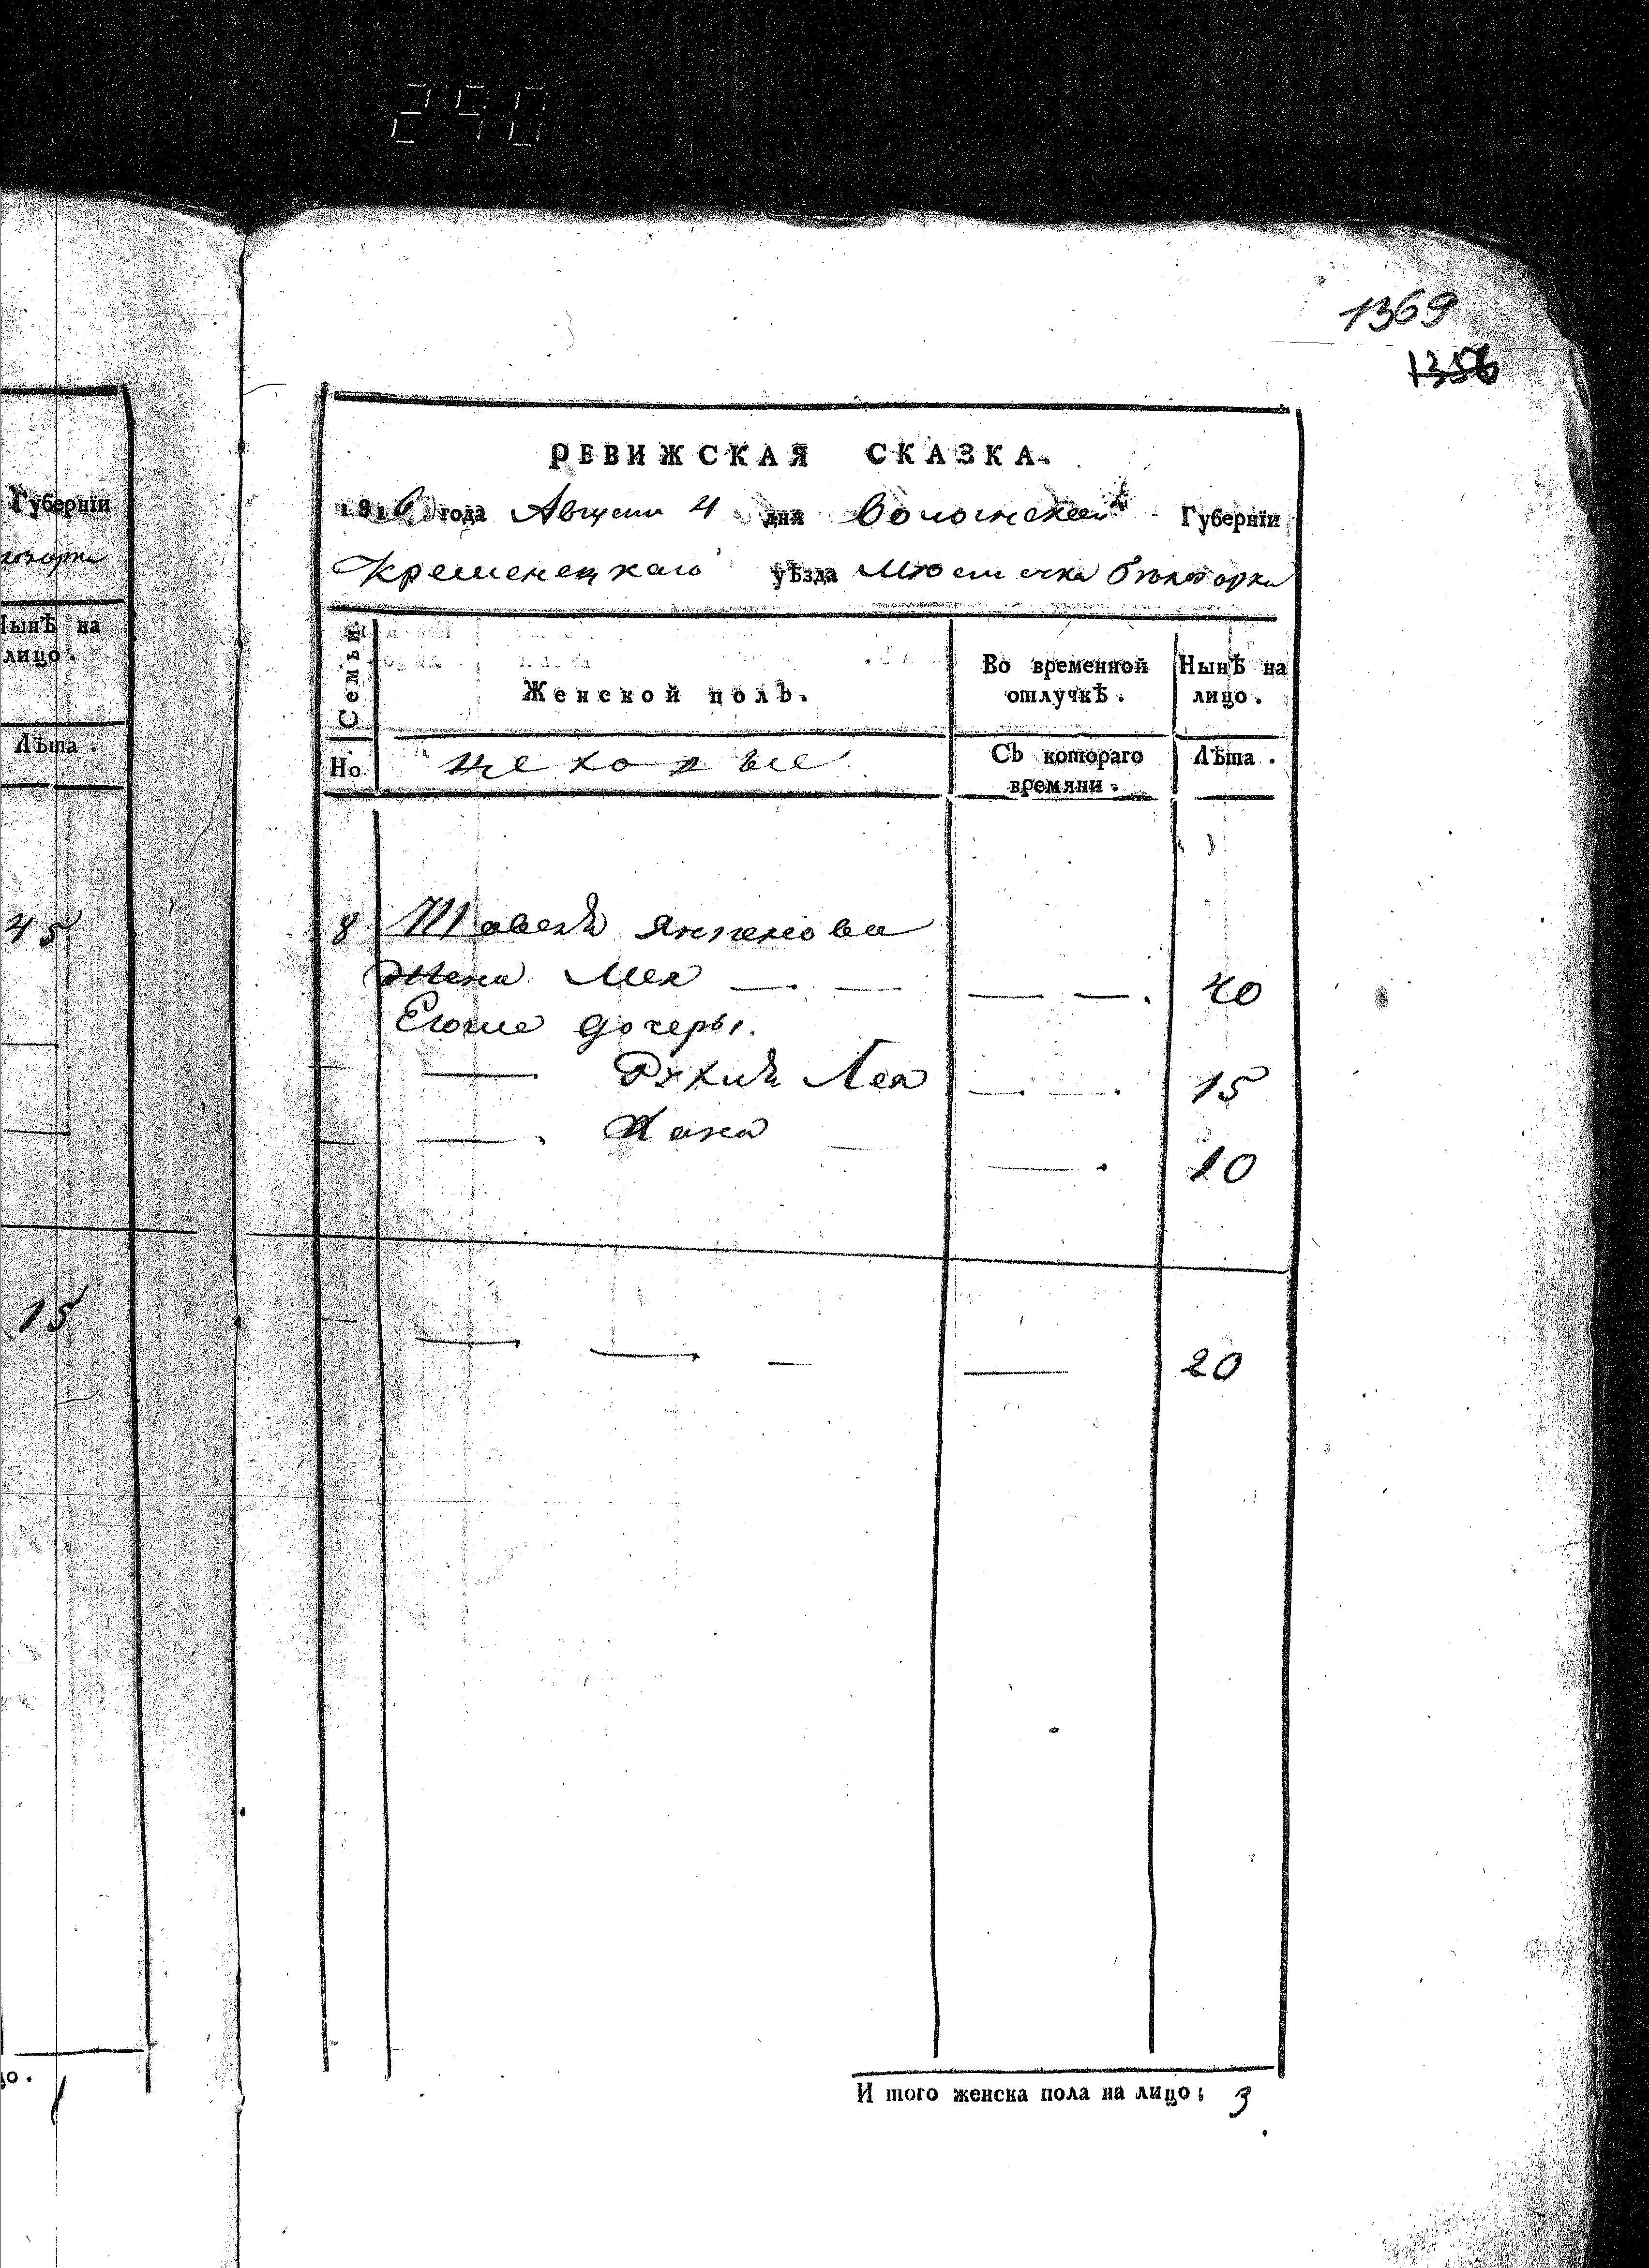 290
1369
1356
Губернїи
Нынѣ на
лицо.
Лѣта.
45
15
РЕВИЖСКАЯ СКАЗКА.
1816 года Августа 4 дня Волынской Губернїи
Кременецкаго уѣзда Мѣстечка Бѣлозорки
Семьи.
Женской полъ.
Во временной
отлучкѣ.
Нынѣ на
лицо.
Но.
Съ котораго
времяни.
Лѣта.
8 Янкелова
Жена — — — —. 40
Егоже дочеры.
— Рухля Лея — —. 15
—. Хана — —. 10
— — — — 20
И того женска пола на лицо; 3